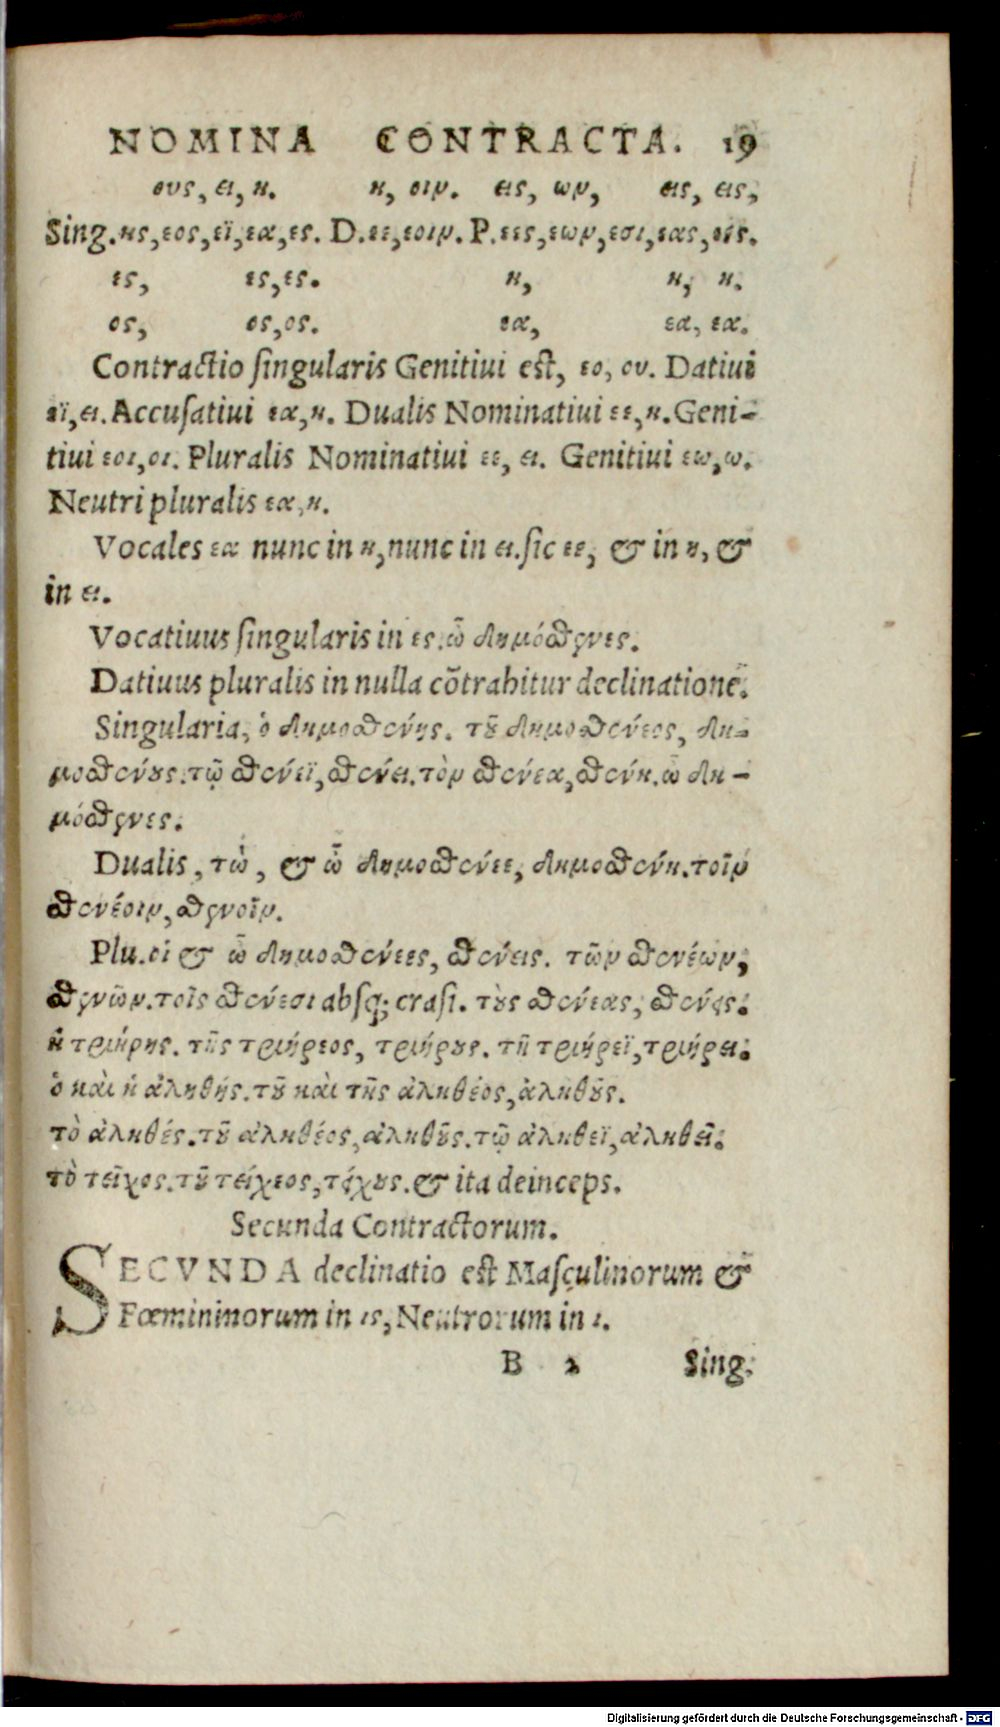 NOMINA CONTRACTA. 19
ους, ει, η. η, οιν. εις, ων, εις, εις,
Sing. ης, εος, εϊ, εα, ες. D. εε, εοιν. P. εες, εων, εσι, εας, εες.
ες, ες, ες. η, η, η.
ος, ος, ος. εα, εα, εα.
Contractio singularis Genitiui est, εο, ου. Datiui
εϊ, ει. Accusatiui εα, η. Dualis Nominatiui εε, η. Geni-
tiui εοι, οι. Pluralis Nominatiui εε, ει. Genitiui εω, ω.
Neutri pluralis εα, η.
Vocales εα nunc in η, nunc in ει. sic εε, & in η, &
in ει.
Vocatiuus singularis in ες. ὦ Δημόσθενες.
Datiuus pluralis in nulla cōtrahitur declinatione.
Singularia, ὁ Δημοσθένης. τοῦ Δημοσθένεος, Δη-
μοσθένους. τῷ σθένεϊ, σθένει. τὸν σθένεα, σθένη. ὦ Δη-
μόσθενες.
Dualis, τὼ, & ὦ Δημοσθένεε, Δημοσθένη. τοῖν
σθενέοιν, σθενοῖν.
Plu. οἱ & ὦ Δημοσθένεες, σθένεις. τῶν σθενέων,
σθενῶν. τοῖς σθένεσι absq; crasi. τοὺς σθένεας, σθένεις.
ἡ τριήρης. τῆς τριήρεος, τριήρους. τῇ τριήρεϊ, τριήρει.
ὁ καὶ ἡ ἀληθής. τοῦ καὶ τῆς ἀληθέος, ἀληθοῦς.
τὸ ἀληθές. τοῦ ἀληθέος, ἀληθοῦς. τῷ ἀληθεϊ, ἀληθεῖ.
τὸ τεῖχος. τοῦ τείχεος, τείχους. & ita deinceps.
Secunda Contractorum.
SECVNDA declinatio est Masculinorum &
Fœmininorum in ις, Neutrorum in ι.
B 2 Sing.
Digitalisierung gefördert durch die Deutsche Forschungsgemeinschaft - DFG